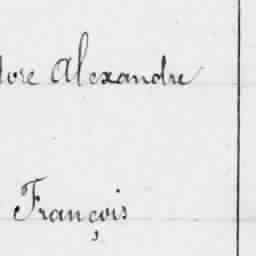 Alexandre
François